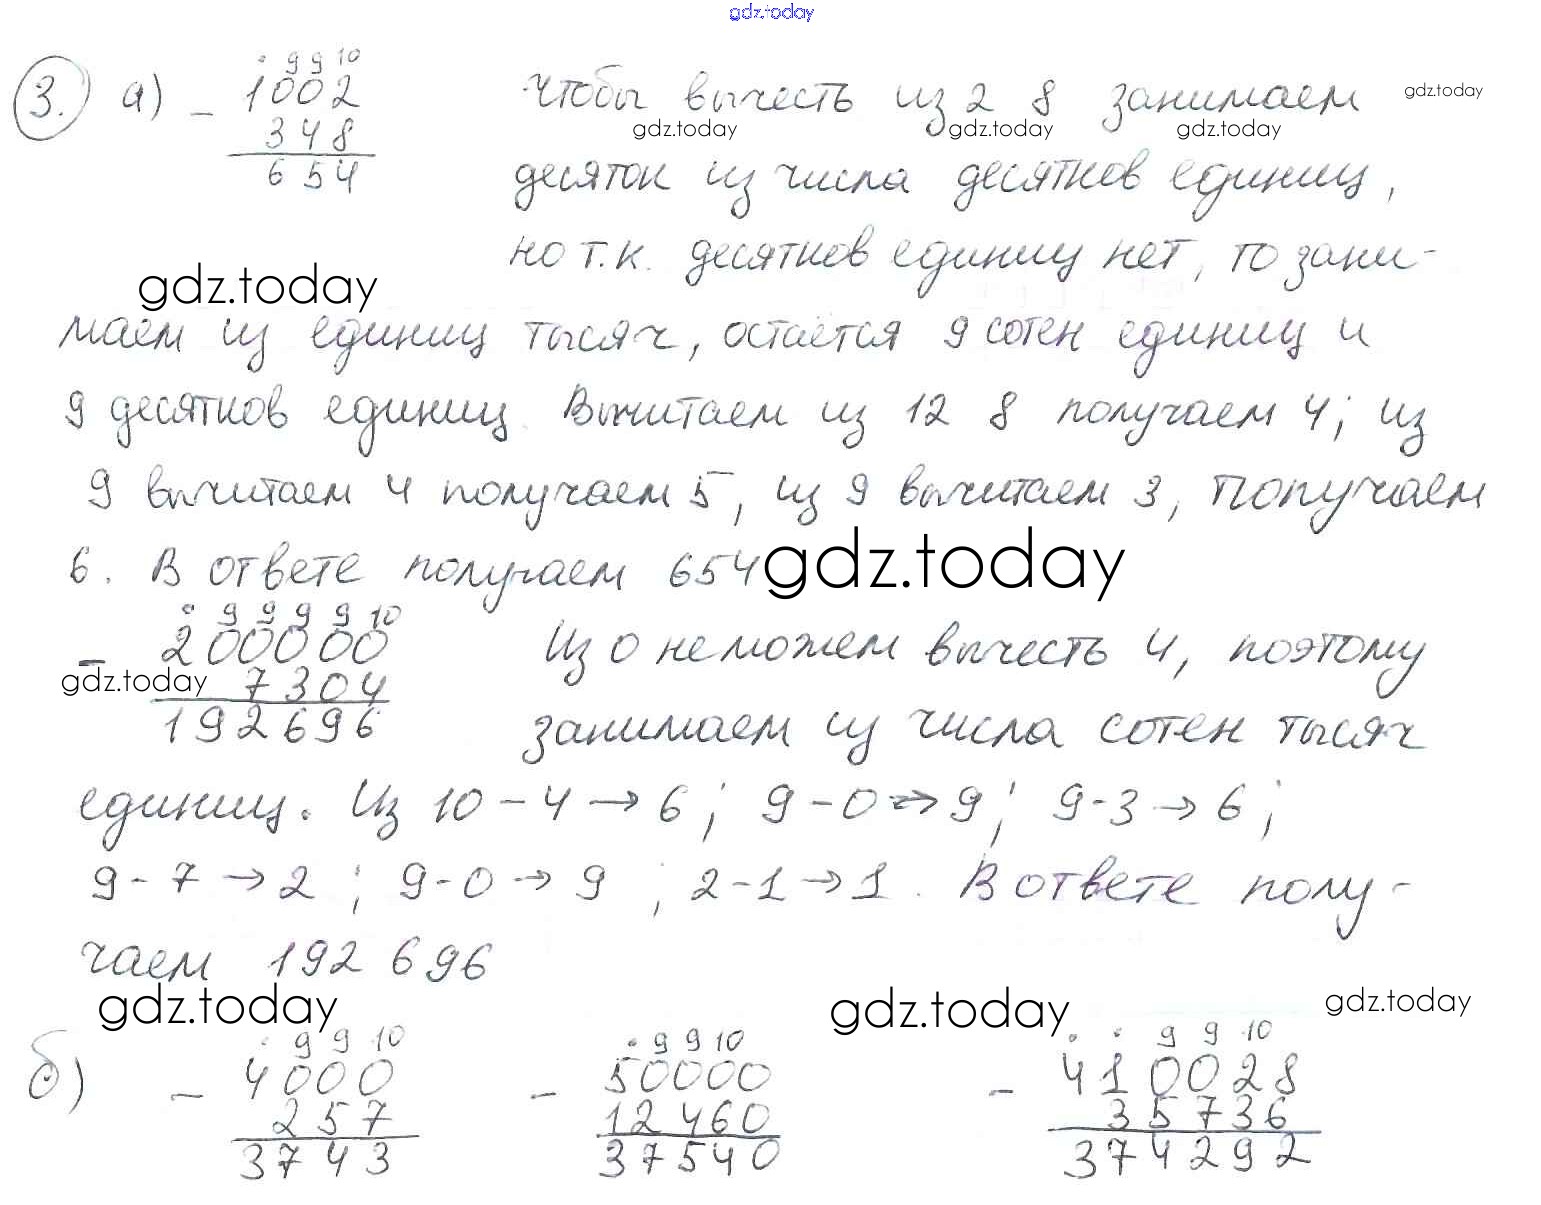 gdz.today
° 9 9 10
3. а) - 1002 Чтобы вычесть из 2 8 занимаем gdz.today
348 gdz.today gdz.today gdz.today
654 десяток из числа десятков единиц,
но т.к. десятков единиц нет, то зани-
gdz.today
маем из единиц тысяч, остаётся 9 сотен единиц и
9 десятков единиц. Вычитаем из 12 8 получаем 4; из
9 вычитаем 4 получаем 5, из 9 вычитаем 3, получаем
6. В ответе получаем 654 gdz.today
° 9 9 9 9 10
- 200000 Из 0 не можем вычесть 4, поэтому
gdz.today 7304
192696 занимаем из числа сотен тысяч
единиц. Из 10 - 4 → 6; 9 - 0 → 9; 9 - 3 → 6;
9 - 7 → 2; 9 - 0 → 9; 2 - 1 → 1. В ответе полу-
чаем 192 696
gdz.today gdz.today gdz.today
° 9 9 10 ° 9 9 10 ° ° 9 9 10
б) - 4000 - 50000 - 410028
257 12460 35736
3743 37540 374292